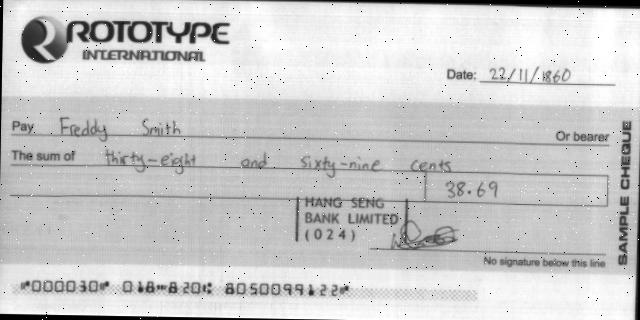 ROTOTYPE
INTERNATIONAL
Date: 22/11/1860
Pay Freddy Smith Or bearer
The sum of thirty-eight and sixty-nine cents
38.69
HANG SENG
BANK LIMITED
(024)
No signature below this line
SAMPLE CHEQUE
⑈000030⑈ 018⑉820⑆ 8050099122⑈